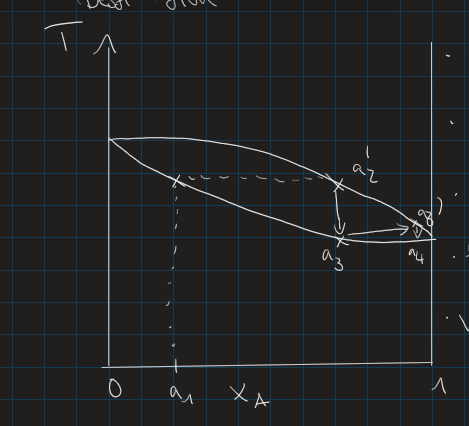 T
a₂'
a₃'
a₃
a₄
0
a₁
X_A
1